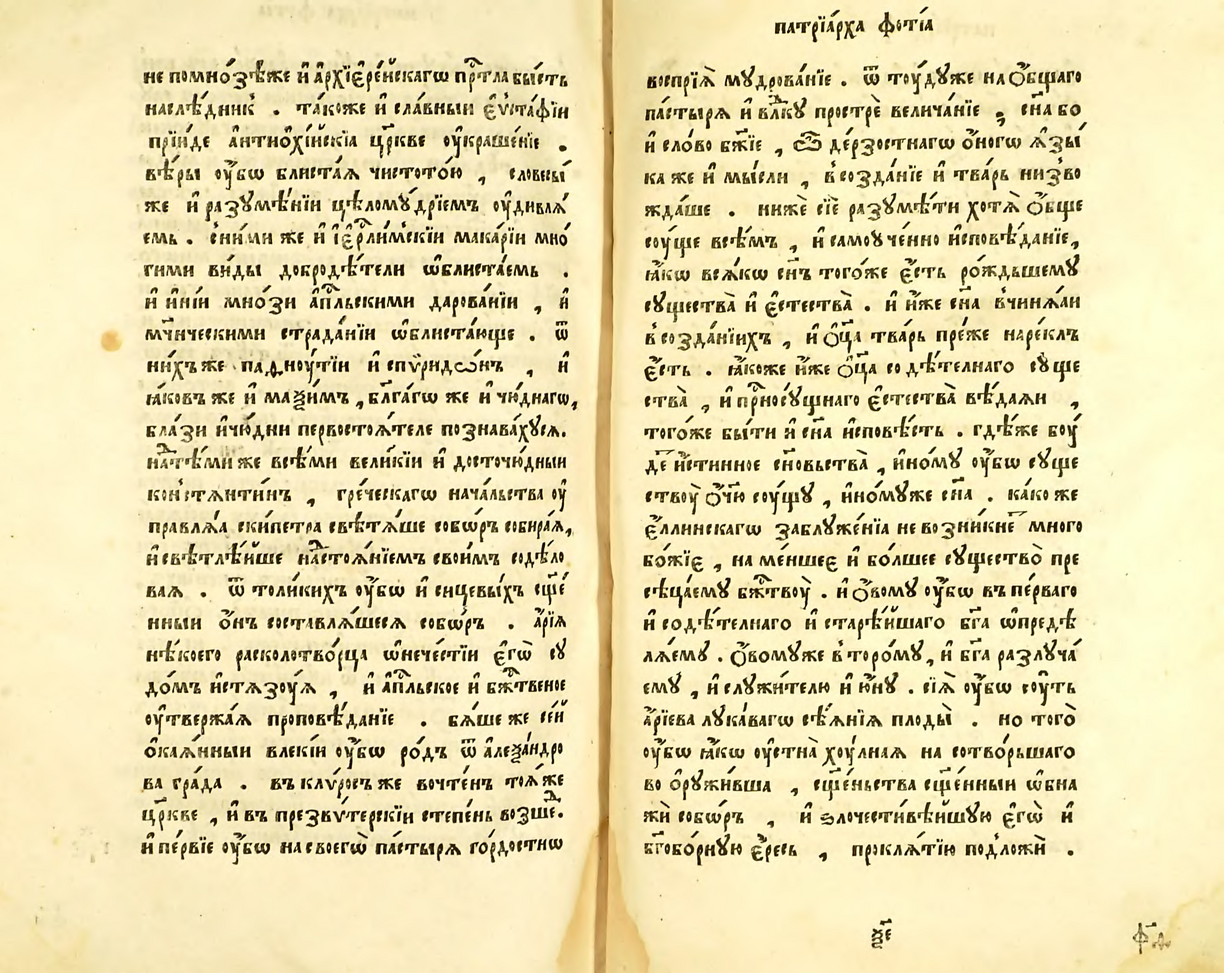 не помно́зѣже и҆ а҆рхїере́йскагѡ прⷭ҇тла бы́сть
наслѣ́дник̾ . та́коже и҆ сла́вныи є҆ѵста́фїи
прїи́де а҆нтиѡ҆хі́йскїа цр҃кве оу҆краше́нїе .
вѣ́ры оу҆́бѡ блиста́ѧ чистото́ю , словесы́
же и҆ разꙋмѣ́нїи цѣломꙋ́дрїемъ оу҆дивлѧ́
емь . сни́ми же и҆ і҆ерⷭ҇ли́мскїи мака́рїи мно́
гими ви́ды добродѣ́тели ѡ҆блиста́емь .
и҆ и҆ні́и мно́зи а҆пⷭ҇льскими дарова́нїи , и҆
мч҃ническими страда́нїи ѡ҆блиста́юще . ѿ
ни́хъ же пафноу́тїи и҆ спѷридѡ́нъ , и҆
ꙗ҆́ковъ же и҆ маѯи́мъ , бл҃га́гѡ же и҆ чю́днагѡ,
бла́зи и҆чю́дни первостоѧ́теле познава́хꙋсѧ.
наⷣтѣ́ми же всѣ́ми вели́кїи и҆ досточю́дныи
конⸯстѧнти́нъ , гре́ческагѡ нача́льства оу҆
правлѧ́ѧ ски́петра свѣтѧ́ше собѡ́ръ собира́ѧ,
и҆ свѣтлѣ́йше наⷭ҇тоѧ́нїемъ свои́мъ содѣ́ло
ваѧ . ѿ толи́кихъ оу҆́бѡ и҆ сицевы́хъ сщ҃е́
нныи ѻ҆́нъ составлѧ́шесѧ собѡ́ръ . а҆́рїѧ
нѣ́коего расколотво́рца ѡ҆нече́стїи є҆гѡ̀ сꙋ
до́мъ и҆стѧзоу́ѧ , и҆ а҆пⷭ҇льское и҆ бжⷭ҇твеное
оу҆твержа́ѧ проповѣ́данїе . бѧ́ше же се́й
ѻ҆каѧ́нныи влекі́и оу҆́бѡ ро́дъ ѿ а҆леѯа́ндро
ва гра́да . въ клѵ́росъ же вочте́нъ тоѧ́же
цр҃кве , и҆ въ презвѵ́терскїи степе́нь возше́ⷣ.
и҆ пе́рвїе оу҆́бѡ на своегѡ̀ па́стырѧ го́рдостнѡ
патрїа́рха фо́тїа
воспрїѧ̀ мꙋдрова́нїе . ѿ тоу́дꙋже на ѻ҆́бщаго
па́стырѧ и҆ влⷣкꙋ прострѐ велича́нїе , сн҃а бо
и҆ сло́во бж҃їе , ѽ де́рзостнагѡ ѻ҆́ногѡ ѧ҆зы́
ка же и҆ мы́сли , в̾созда́нїе и҆ тва́рь низво
жда́ше . нижѐ сїѐ разꙋмѣ́ти хотѧ̀ ѻ҆́бще
соу́ще всѣ́мъ , и҆ самоꙋче́нно и҆сповѣ́данїе,
ꙗ҆́кѡ всѧ́кѡ сн҃ъ тогѡ́же є҆́сть ро́ждьшемꙋ
сꙋщества̀ и҆ є҆стества̀ . и҆ и҆́же сн҃а в̾чинѧ́аи
в̾созда́нїихъ , и҆ ѻ҆ц҃а тва́рь пре́же наре́клъ
є҆́сть . ꙗ҆́коже и҆́же ѻ҆ц҃а содѣ́телнаго сꙋ́ще
ства̀ , и҆ прⷭ҇носꙋ́щнаго є҆стества̀ вѣ́даѧи ,
того́же бы́ти и҆ сн҃а и҆сповѣ́сть . гдѣ́же боу́
деⷮ и҆́стинное сн҃овьства̀ , и҆но́мꙋ оу҆́бѡ сꙋще
ствоу̀ ѻ҆́ч҃ю соу́щꙋ , и҆но́мꙋже сн҃а . ка́ко же
є҆́ллинскагѡ заблꙋже́нїа не возни́кнеⷮ много
бо́жїе , на ме́ншее и҆ бо́лшее сꙋщество̀ пре
сѣца́емꙋ бжⷭ҇твоу̀ . и҆ ѻ҆́вомꙋ оу҆́бѡ въ пе́рваго
и҆ содѣ́телнаго и҆ старѣ́йшаго бг҃а ѡ҆предѣ
лѧ́емꙋ . ѻ҆́вомꙋже в̾торо́мꙋ, и҆ бг҃а разлꙋча́
емꙋ , и҆ слꙋжи́телю и҆ ю҆́нꙋ . сїѧ̀ оу҆́бѡ соу́ть
а҆́рїева лꙋка́вагѡ сѣ́ѧнїѧ плоды̀ . но того̀
оу҆́бѡ ꙗ҆́кѡ оу҆стна̀ хоу́лнаѧ на сотво́рьшаго
во ѻ҆рꙋжи́вша , сщ҃е́ньства сщ҃е́нныи ѡ҆бна
жѝ собѡ́ръ , и҆ ѕлочести́вѣйшꙋю є҆гѡ̀ и҆
бг҃обо́рнꙋю є҆́ресь , проклѧ́тїю подложѝ .
ѯ҃е